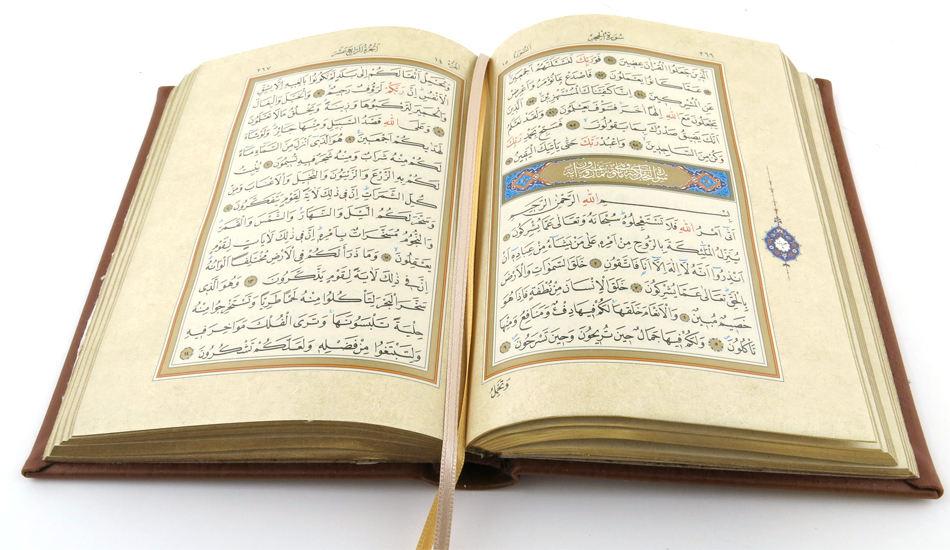 ٢٦٦ سُورَةُ الْحِجْرِ
الَّذِينَ جَعَلُوا الْقُرْاٰنَ عِضِينَ ﴿٩١﴾ فَوَرَبِّكَ لَنَسْـَٔلَنَّهُمْ اَجْمَعِينَ
﴿٩٢﴾ عَمَّا كَانُوا يَعْمَلُونَ ﴿٩٣﴾ فَاصْدَعْ بِمَا تُؤْمَرُ وَاَعْرِضْ
عَنِ الْمُشْرِكِينَ ﴿٩٤﴾ اِنَّا كَفَيْنَاكَ الْمُسْتَهْزِئِينَ ﴿٩٥﴾ الَّذِينَ
يَجْعَلُونَ مَعَ اللّٰهِ اِلٰهًا اٰخَرَ فَسَوْفَ يَعْلَمُونَ ﴿٩٦﴾ وَلَقَدْ نَعْلَمُ
اَنَّكَ يَضِيقُ صَدْرُكَ بِمَا يَقُولُونَ ﴿٩٧﴾ فَسَبِّحْ بِحَمْدِ رَبِّكَ
وَكُنْ مِنَ السَّاجِدِينَ ﴿٩٨﴾ وَاعْبُدْ رَبَّكَ حَتّٰى يَأْتِيَكَ الْيَقِينُ ﴿٩٩﴾
بِسْمِ اللّٰهِ الرَّحْمٰنِ الرَّحِيمِ
اَتٰٓى اَمْرُ اللّٰهِ فَلَا تَسْتَعْجِلُوهُ سُبْحَانَهُ وَتَعَالٰى عَمَّا يُشْرِكُونَ ﴿١﴾
يُنَزِّلُ الْمَلٰٓئِكَةَ بِالرُّوحِ مِنْ اَمْرِهِ عَلٰى مَنْ يَشَآءُ مِنْ عِبَادِهِ اَنْ
اَنْذِرُوا اَنَّهُ لَآ اِلٰهَ اِلَّآ اَنَا۬ فَاتَّقُونِ ﴿٢﴾ خَلَقَ السَّمٰوَاتِ وَالْاَرْضَ
بِالْحَقِّ تَعَالٰى عَمَّا يُشْرِكُونَ ﴿٣﴾ خَلَقَ الْاِنْسَانَ مِنْ نُطْفَةٍ فَاِذَا هُوَ
خَصِيمٌ مُبِينٌ ﴿٤﴾ وَالْاَنْعَامَ خَلَقَهَا لَكُمْ فِيهَا دِفْءٌ وَمَنَافِعُ وَمِنْهَا
تَأْكُلُونَ ﴿٥﴾ وَلَكُمْ فِيهَا جَمَالٌ حِينَ تُرِيحُونَ وَحِينَ تَسْرَحُونَ ﴿٦﴾
وَتَحْمِلُ
اَلْجُزْءُ الرَّابِعَ عَشَرَ ٢٦٧
وَتَحْمِلُ اَثْقَالَكُمْ اِلٰى بَلَدٍ لَمْ تَكُونُوا بَالِغِيهِ اِلَّا بِشِقِّ
الْاَنْفُسِ اِنَّ رَبَّكُمْ لَرَؤُفٌ رَحِيمٌ ﴿٧﴾ وَالْخَيْلَ وَالْبِغَالَ
وَالْحَمِيرَ لِتَرْكَبُوهَا وَزِينَةً وَيَخْلُقُ مَا لَا تَعْلَمُونَ
﴿٨﴾ وَعَلَى اللّٰهِ قَصْدُ السَّبِيلِ وَمِنْهَا جَآئِرٌ وَلَوْ شَآءَ
لَهَدٰيكُمْ اَجْمَعِينَ ﴿٩﴾ هُوَ الَّذِٓي اَنْزَلَ مِنَ السَّمَآءِ مَآءً
لَكُمْ مِنْهُ شَرَابٌ وَمِنْهُ شَجَرٌ فِيهِ تُسِيمُونَ ﴿١٠﴾ يُنْبِتُ
لَكُمْ بِهِ الزَّرْعَ وَالزَّيْتُونَ وَالنَّخِيلَ وَالْاَعْنَابَ وَمِنْ
كُلِّ الثَّمَرَاتِ اِنَّ فِي ذٰلِكَ لَاٰيَةً لِقَوْمٍ يَتَفَكَّرُونَ ﴿١١﴾
وَسَخَّرَ لَكُمُ الَّيْلَ وَالنَّهَارَ وَالشَّمْسَ وَالْقَمَرَ
وَالنُّجُومُ مُسَخَّرَاتٌ بِاَمْرِهِ اِنَّ فِي ذٰلِكَ لَاٰيَاتٍ لِقَوْمٍ
يَعْقِلُونَ ﴿١٢﴾ وَمَا ذَرَاَ لَكُمْ فِي الْاَرْضِ مُخْتَلِفًا اَلْوَانُهُ
اِنَّ فِي ذٰلِكَ لَاٰيَةً لِقَوْمٍ يَذَّكَّرُونَ ﴿١٣﴾ وَهُوَ الَّذِي
سَخَّرَ الْبَحْرَ لِتَأْكُلُوا مِنْهُ لَحْمًا طَرِيًّا وَتَسْتَخْرِجُوا مِنْهُ
حِلْيَةً تَلْبَسُونَهَا وَتَرَى الْفُلْكَ مَوَاخِرَ فِيهِ
وَلِتَبْتَغُوا مِنْ فَضْلِهِ وَلَعَلَّكُمْ تَشْكُرُونَ ﴿١٤﴾